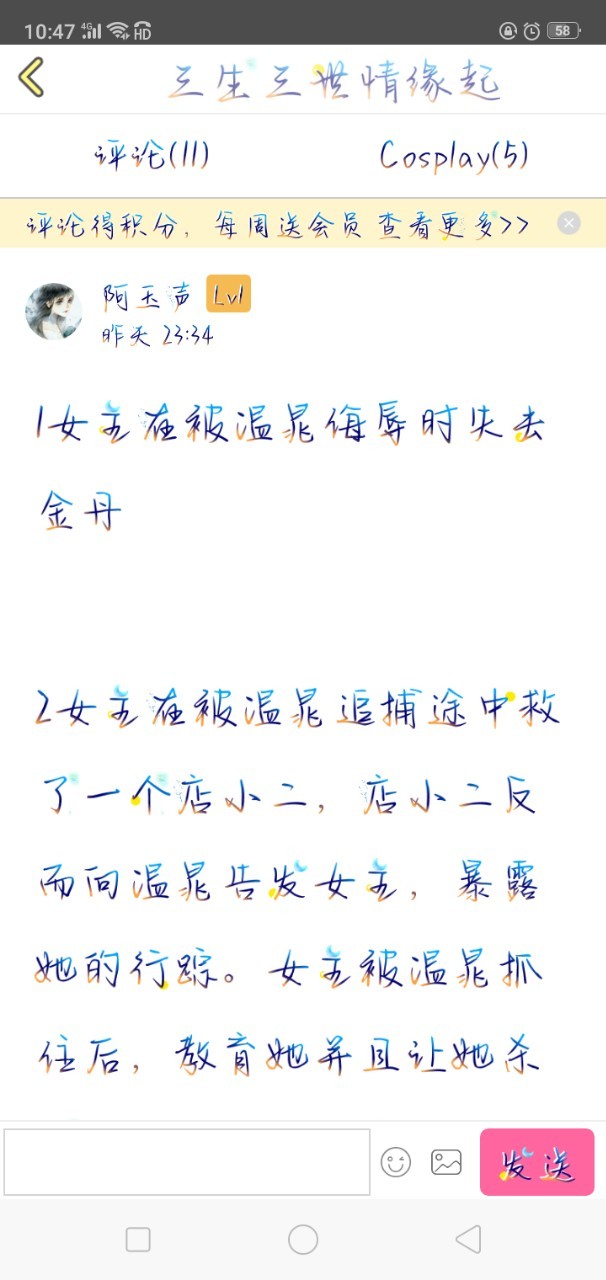 10:47 4G HD 58
三生三世情缘起
评论(11) Cosplay(5)
评论得积分，每周送会员 查看更多>>
阿玉声 Lv1
昨天 23:34
1女主在被温晁侮辱时失去
金丹
2女主在被温晁追捕途中救
了一个店小二，店小二反
而向温晁告发女主，暴露
她的行踪。女主被温晁抓
住后，教育她并且让她杀
发送